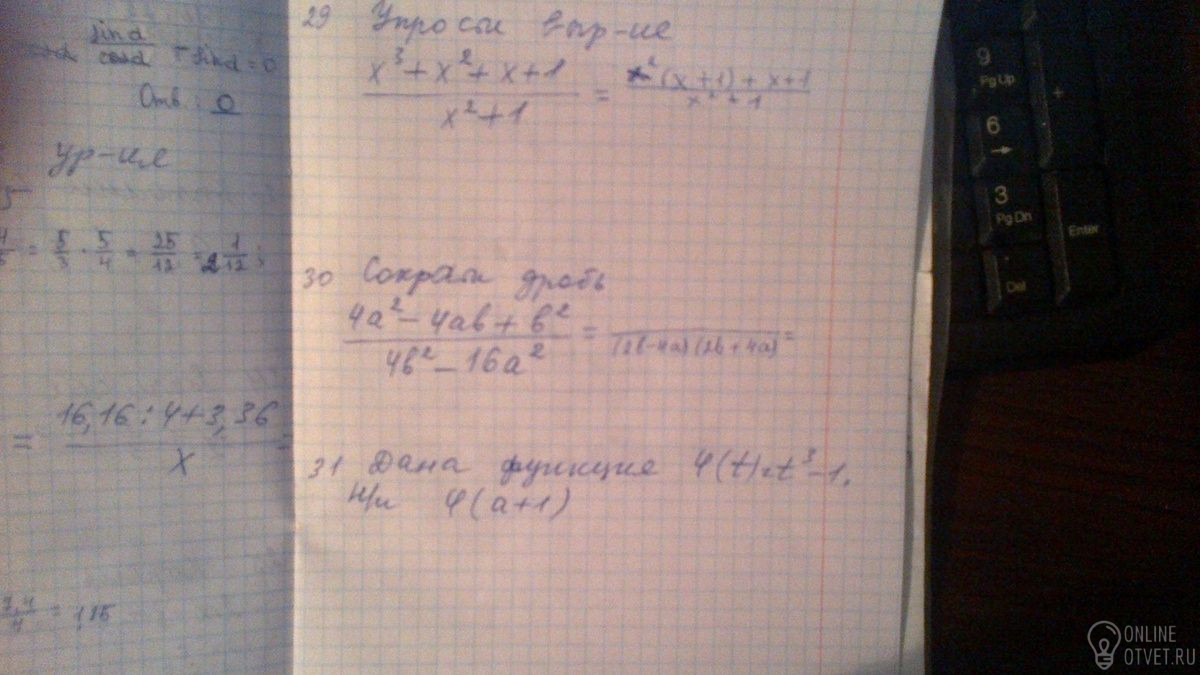 sinα/cosα - sinα = 0
Отв: 0
ур-ие
= 5/3 · 5/4 = 25/12 = 2 1/12;
= (16,16 : 4 + 3,36)/x =
= 1,85
29 Упрости выр-ие
(x³ + x² + x + 1)/(x² + 1) = (x²(x + 1) + x + 1)/(x² + 1)
30 Сократи дробь
(4a² - 4ab + b²)/(4b² - 16a²) = /((2b - 4a)(2b + 4a)) =
31 Дана функция φ(t) = t³ - 1.
Н/и φ(a+1)
9
Pg Up
+
6
→
3
Pg Dn
Enter
.
Del
ONLINE
OTVET.RU